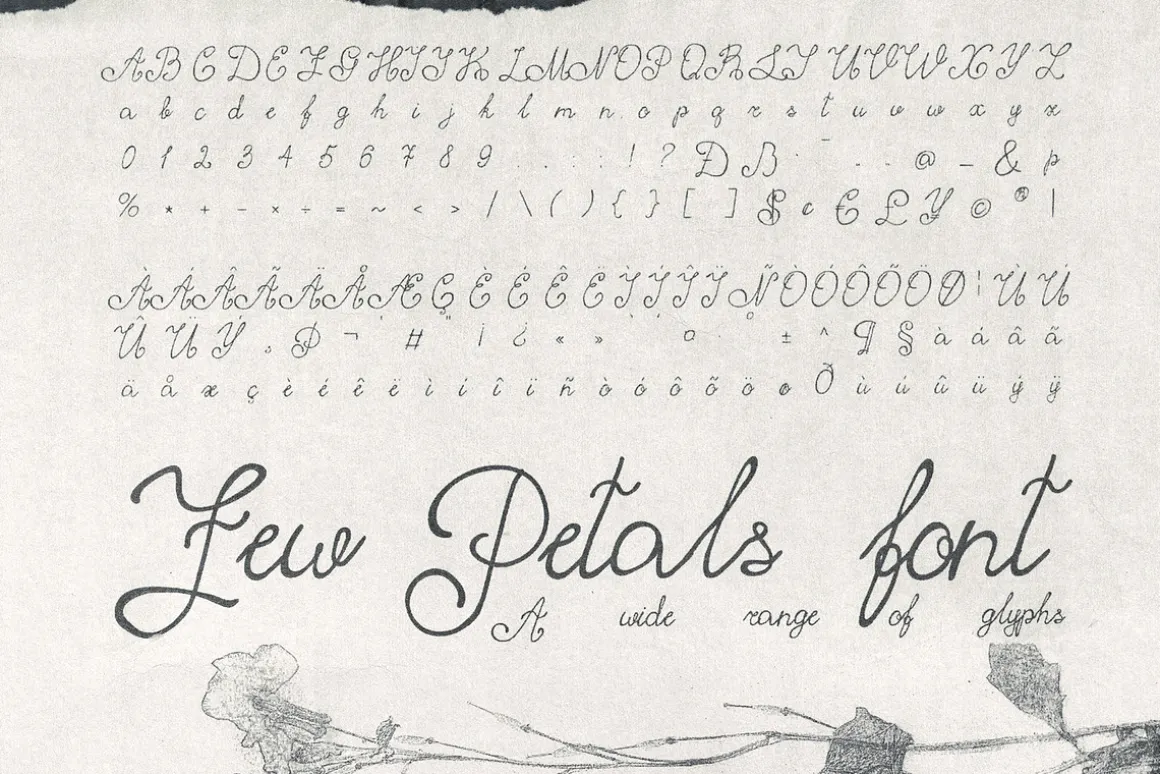 A B C D E F G H I J K L M N O P Q R S T U V W X Y Z
a b c d e f g h i j k l m n o p q r s t u v w x y z
0 1 2 3 4 5 6 7 8 9 . , : ; ! ? Ð ß · ¯ - - @ _ & þ
% * + − × ÷ = ~ < > / \ ( ) { } [ ] $ c € £ ¥ © ® |
À Á Â Ã Ä Å Æ Ç È É Ê Ë Ì Í Î Ï Ñ Ò Ó Ô Õ Ö Ø ¦ Ù Ú
Û Ü Ý Þ ¬ # ¡ ¿ « » ¤ ° ± ^ ¶ § à á â ã
ä å æ ç è é ê ë ì í î ï ñ ò ó ô õ ö ø ð ù ú û ü ý ÿ
Few Petals font
A wide range of glyphs